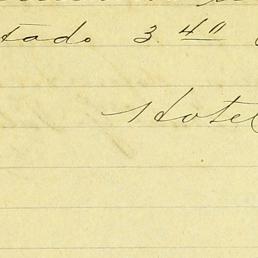 tado 3.40
Hotel